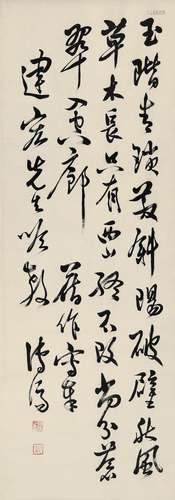 玉階青鎖散斜陽破壁秋風
草木長只有西山終不改尚分蒼
翠入空廊 舊作寫奉
建 先生哂教 溥儒